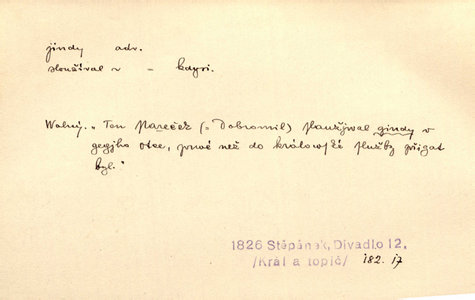 jindy adv.
sloužíval ~ – kdysi.
Wolný. „Ten Mareček (= Dobromil) slaužjwal gindy v
gegjho otce, prwé než do králowské služby přigat
byl.“
1826 Štěpánek, Divadlo 12.
/Král a topič/ 182. 17